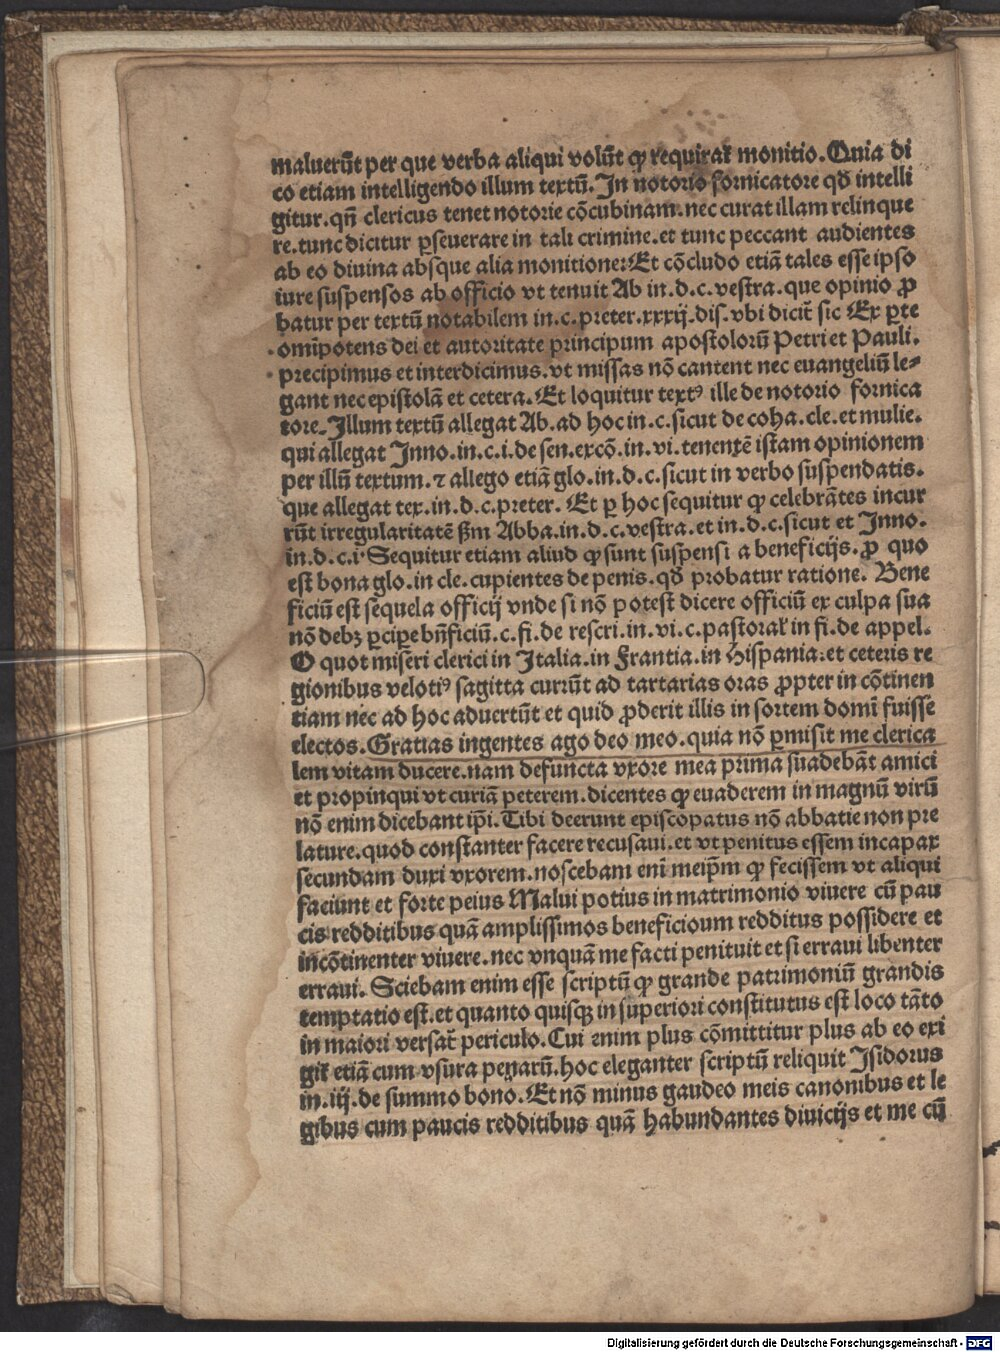 maluerūt per que verba aliqui volūt ꝙ requirat᷑ monitio. Quia di
co etiam intelligendo illum textū. In notorio fornicatore qđ intelli
gitur. qñ clericus tenet notorie cōcubinam. nec curat illam relinque
re. tunc dicitur ꝑseuerare in tali crimine. et tunc peccant audientes
ab eo diuina absque alia monitione: Et cōcludo etiā tales esse ipso
iure suspensos ab officio vt tenuit Ab in. d. c. vestra. que opinio ꝓ
batur per textū notabilem in. c. preter. xxxij. dis. vbi dicit᷑ sic Ex ꝑte
omīpotens dei et autoritate principum apostolorū Petri et Pauli.
precipimus et interdicimus. vt missas nō cantent nec euangeliū le⸗
gant nec epistolā et cetera. Et loquitur textꝰ ille de notorio fornica
tore. Illum textū allegat Ab. ad hoc in. c. sicut de coha. cle. et mulie.
qui allegat Inno. in. c. i. de sen. excō. in. vi. tenentē istam opinionem
per illū textum. ⁊ allego etiā glo. in. d. c. sicut in verbo suspendatis.
que allegat tex. in. d. c. preter. Et ꝑ hoc sequitur ꝙ celebrātes incur
rūt irregularitatē ẜm Abba. in. d. c. vestra. et in. d. c. sicut et Inno.
in. d. c. i. Sequitur etiam aliud ꝙ sunt suspensi a beneficijs. ꝓ quo
est bona glo. in cle. cupientes de penis. qđ probatur ratione. Bene
ficiū est sequela officij vnde si nō potest dicere officiū ex culpa sua
nō debꝫ ꝑcipe bn̄ficiū. c. fi. de rescri. in. vi. c. pastoral᷑ in fi. de appel.
O quot miseri clerici in Italia. in Frantia. in Hispania: et ceteris re
gionibus velotiꝰ sagitta currūt ad tartarias oras ꝓpter in cōtinen
tiam nec ad hoc aduertūt et quid ꝓderit illis in sortem domī fuisse
electos. Gratias ingentes ago deo meo. quia nō ꝑmisit me clerica
lem vitam ducere. nam defuncta vxore mea prima suadebāt amici
et propinqui vt curiā peterem. dicentes ꝙ euaderem in magnū virū
nō enim dicebant ip̄i. Tibi deerunt episcopatus nō abbatie non pre
lature. quod constanter facere recusaui. et vt penitus essem incapax
secundam duxi vxorem. noscebam eni meip̄m ꝙ fecissem vt aliqui
faciunt et forte peius Malui potius in matrimonio viuere cū pau
cis redditibus quā amplissimos beneficioum redditus possidere et
incōtinenter viuere. nec vnquā me facti penituit et si erraui libenter
erraui. Sciebam enim esse scriptū ꝙ grande patrimoniū grandis
temptatio est. et quanto quisqꝫ in superiori constitutus est loco tāto
in maiori versat᷑ periculo. Cui enim plus cōmittitur plus ab eo exi
git᷑ etiā cum vsura penarū. hoc eleganter scriptū reliquit Isidorus
in. iij. de summo bono. Et nō minus gaudeo meis canonibus et le
gibus cum paucis redditibus quā habundantes diuicijs et me cū
Digitalisierung gefördert durch die Deutsche Forschungsgemeinschaft - DFG